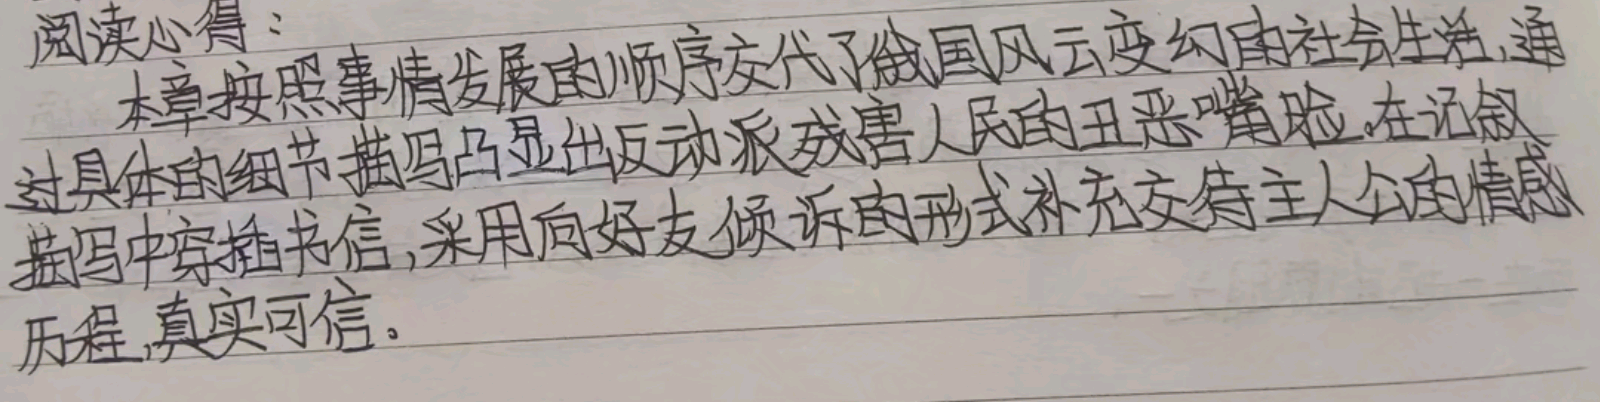 阅读心得：
本章按照事情发展的顺序交代了俄国风云变幻的社会生活，通
过具体的细节描写凸显出反动派残害人民的丑恶嘴脸。在记叙
描写中穿插书信，采用向好友倾诉的形式补充交待主人公的情感
历程，真实可信。